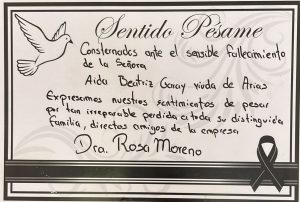 Sentido Pésame
Consternados ante el sensible fallecimiento
de la Señora
Aida Beatriz Garay viuda de Arias
Expresamos nuestros sentimientos de pesar
por tan irreparable perdida a toda su distinguida
familia, directos amigos de la empresa
Dra. Rosa Moreno